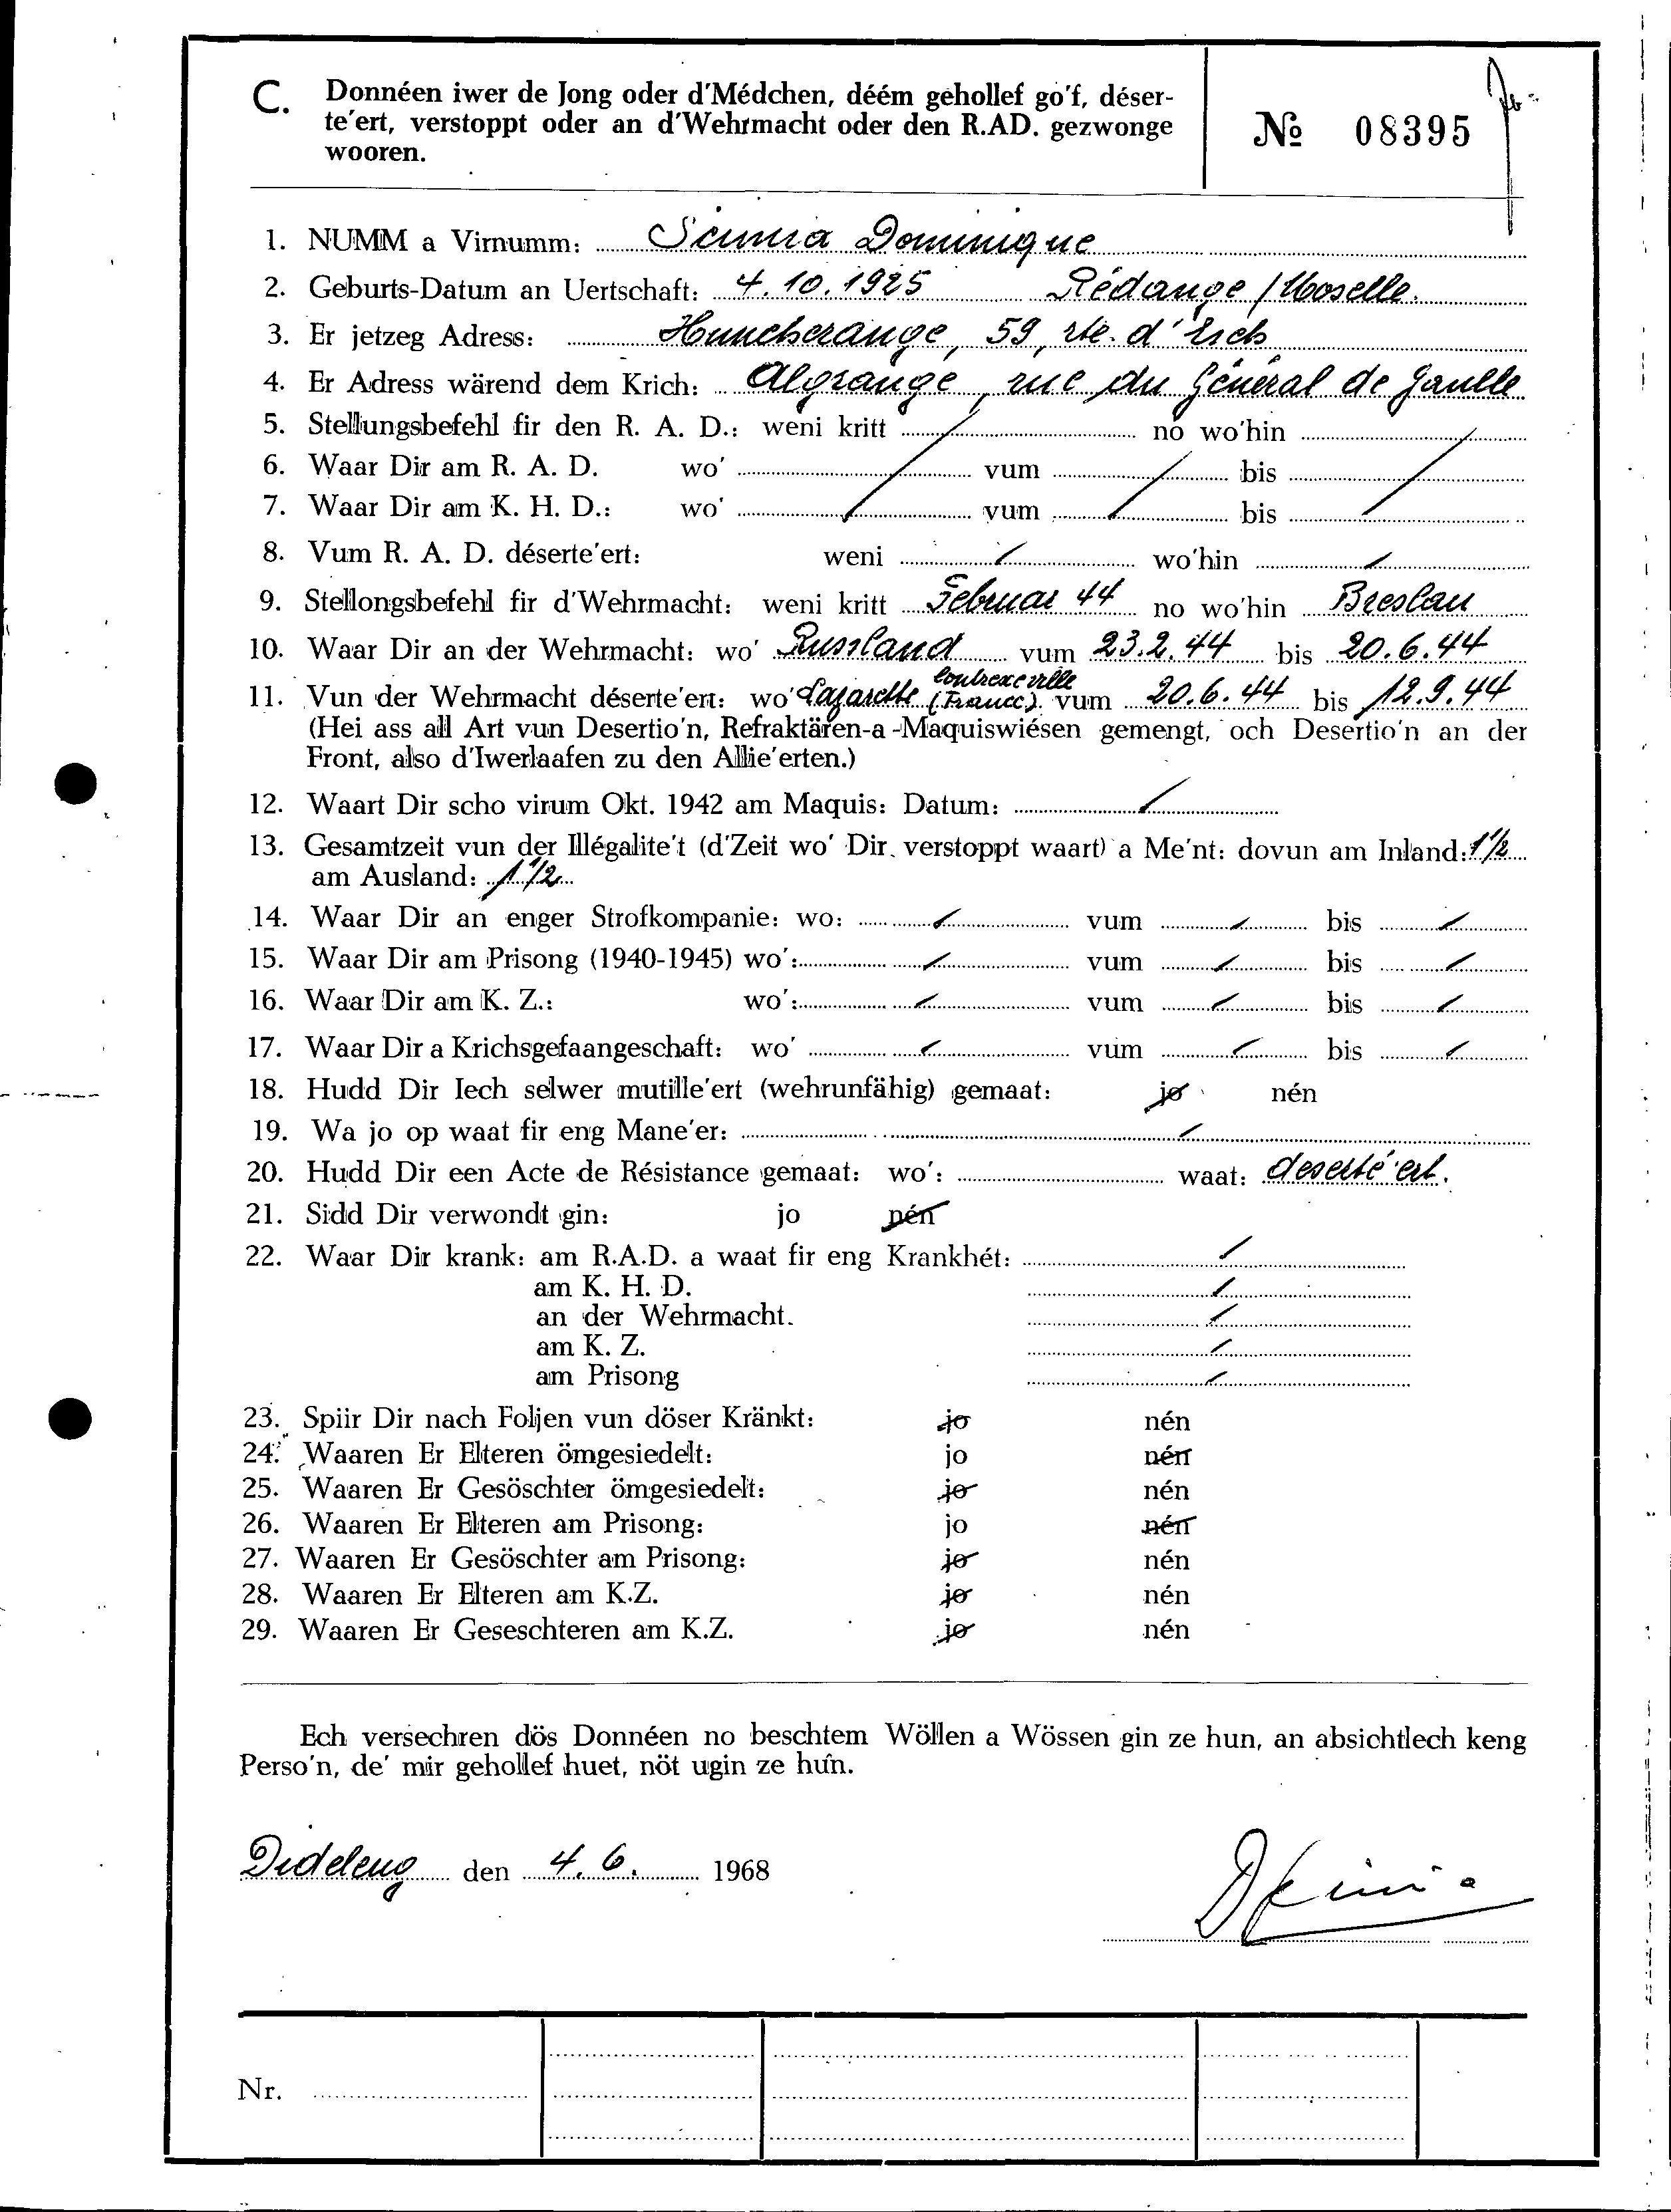 C. Donnéen iwer de Jong oder d'Médchen, déém gehollef go'f, déser-
te'ert, verstoppt oder an d'Wehrmacht oder den R.AD. gezwonge
wooren.
№ 08395
1. NUMM a Virnumm: Scimia Dominique
2. Geburts-Datum an Uertschaft: 4.10.1925 Rédange / Moselle.
3. Er jetzeg Adress: Huncherange, 59, rte. d'Esch
4. Er Adress wärend dem Krich: Algrange, rue du Général de Gaulle
5. Stellungsbefehl fir den R. A. D.: weni kritt / no wo'hin /
6. Waar Dir am R. A. D. wo' / vum / bis /
7. Waar Dir am K. H. D.: wo' / vum / bis /
8. Vum R. A. D. déserte'ert: weni / wo'hin /
9. Stellongsbefehl fir d'Wehrmacht: weni kritt Februar 44 no wo'hin Breslau
10. Waar Dir an der Wehrmacht: wo' Russland vum 23.2.44 bis 20.6.44
11. Vun der Wehrmacht déserte'ert: wo' Lazarette Contrexeville (France). vum 20.6.44 bis 12.9.44
(Hei ass all Art vun Desertio'n, Refraktären-a-Maquiswiésen gemengt, och Desertio'n an der
Front, also d'Iwerlaafen zu den Allie'erten.)
12. Waart Dir scho virum Okt. 1942 am Maquis: Datum: /
13. Gesamtzeit vun der Illégalite't (d'Zeit wo' Dir verstoppt waart) a Me'nt: dovun am Inland: 1 1/2
am Ausland: 1 1/2
14. Waar Dir an enger Strofkompanie: wo: / vum / bis /
15. Waar Dir am Prisong (1940-1945) wo': / vum / bis /
16. Waar Dir am K. Z.: wo': / vum / bis /
17. Waar Dir a Krichsgefaangeschaft: wo' / vum / bis /
18. Hudd Dir Iech selwer mutille'ert (wehrunfähig) gemaat: jo nén
19. Wa jo op waat fir eng Mane'er: /
20. Hudd Dir een Acte de Résistance gemaat: wo': waat: deserté'ert.
21. Sidd Dir verwondt gin: jo nén
22. Waar Dir krank: am R.A.D. a waat fir eng Krankhét: /
am K. H. D. /
an der Wehrmacht. /
am K. Z. /
am Prisong /
23. Spiir Dir nach Foljen vun döser Kränkt: jo nén
24. Waaren Er Elteren ömgesiedelt: jo nén
25. Waaren Er Gesöschter ömgesiedelt: jo nén
26. Waaren Er Elteren am Prisong: jo nén
27. Waaren Er Gesöschter am Prisong: jo nén
28. Waaren Er Elteren am K.Z. jo nén
29. Waaren Er Geseschteren am K.Z. jo nén
Ech versechren dös Donnéen no beschtem Wöllen a Wössen gin ze hun, an absichtlech keng
Perso'n, de' mir gehollef huet, nöt ugin ze hun.
Dideleng den 4. 6. 1968
Nr.